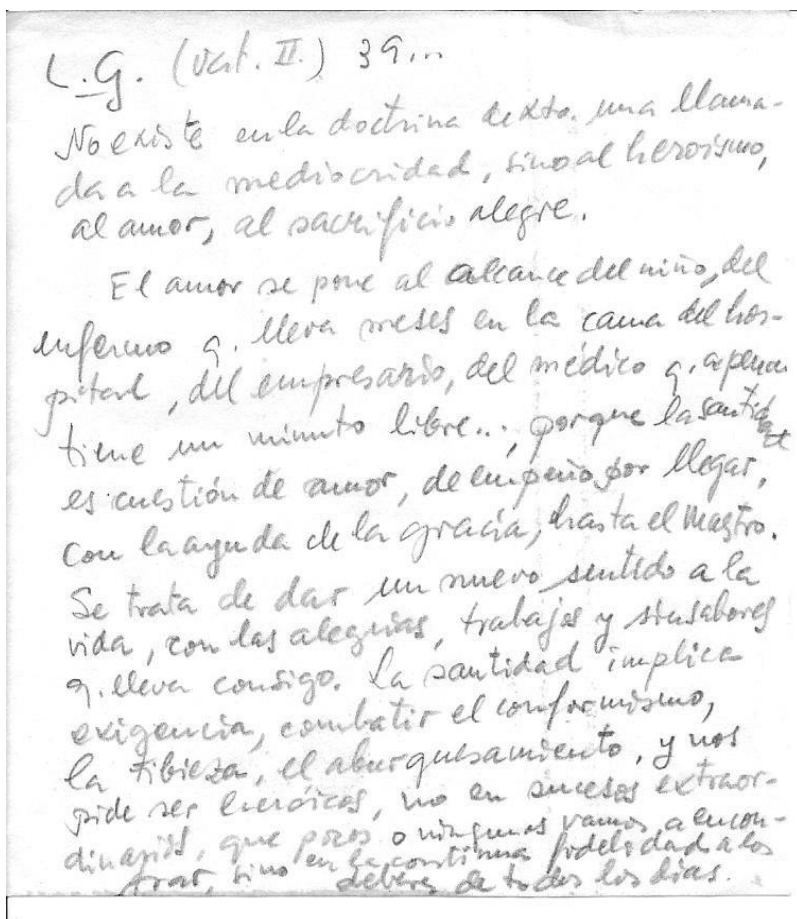 L.G. (Vat. II.) 39...
No existe en la doctrina de Xto. una llama-
da a la mediocridad, sino al heroísmo,
al amor, al sacrificio alegre.
El amor se pone al alcance del niño, del
enfermo q. lleva meses en la cama del hos-
pital, del empresario, del médico q. apenas
tiene un minuto libre..., porque la santidad
es cuestión de amor, de empeño por llegar,
con la ayuda de la gracia, hasta el Maestro.
Se trata de dar un nuevo sentido a la
vida, con las alegrías, trabajos y sinsabores
q. lleva consigo. La santidad implica
exigencia, combatir el conformismo,
la tibieza, el aburguesamiento, y nos
pide ser heroicos, no en sucesos extraor-
dinarios, que pocos o ningunos vamos a encon-
trar, sino en la continua fidelidad a los
deberes de todos los días.